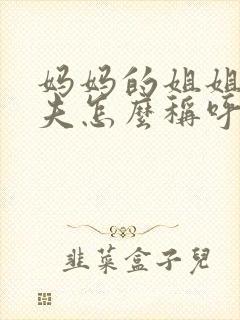 妈妈的姐姐
夫怎麼稱呼
韭菜盒子兒